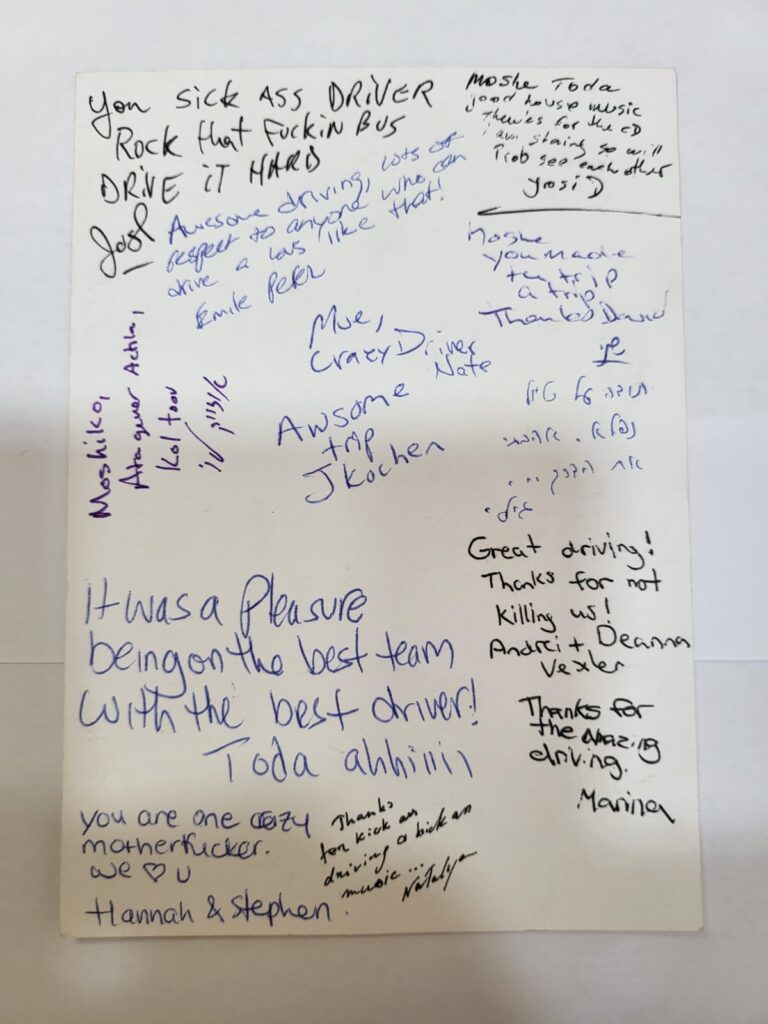 You SICK ASS DRIVER
ROCK that FUCKIN BUS
DRIVE iT HARD
Joel
Moshe Toda
good house music
for the CD
i am so will
see each other
yosi
Awesome driving, lots of
respect to anyone who can
drive a bus like that!
Emile Peter
Moshe
you made
the trip
a trip
Thanks David
Moe,
Crazy Driver
Nate
Awsome
trip
J Kochen
Moshiko,
Ata gever Achi,
Kol toov
תודה על טיול
נפלא. אהבתי
את הדרך ...
Great driving!
Thanks for not
killing us!
Andrei + Deanna
Vexler
Thanks for
the amazing
driving.
Marina
It was a Pleasure
being on the best team
with the best driver!
Toda ahhiiiii
you are one crazy
motherfucker.
we ♡ u
Hannah & Stephen.
Thanks
for kick ass
driving & kick ass
music...
Natalya